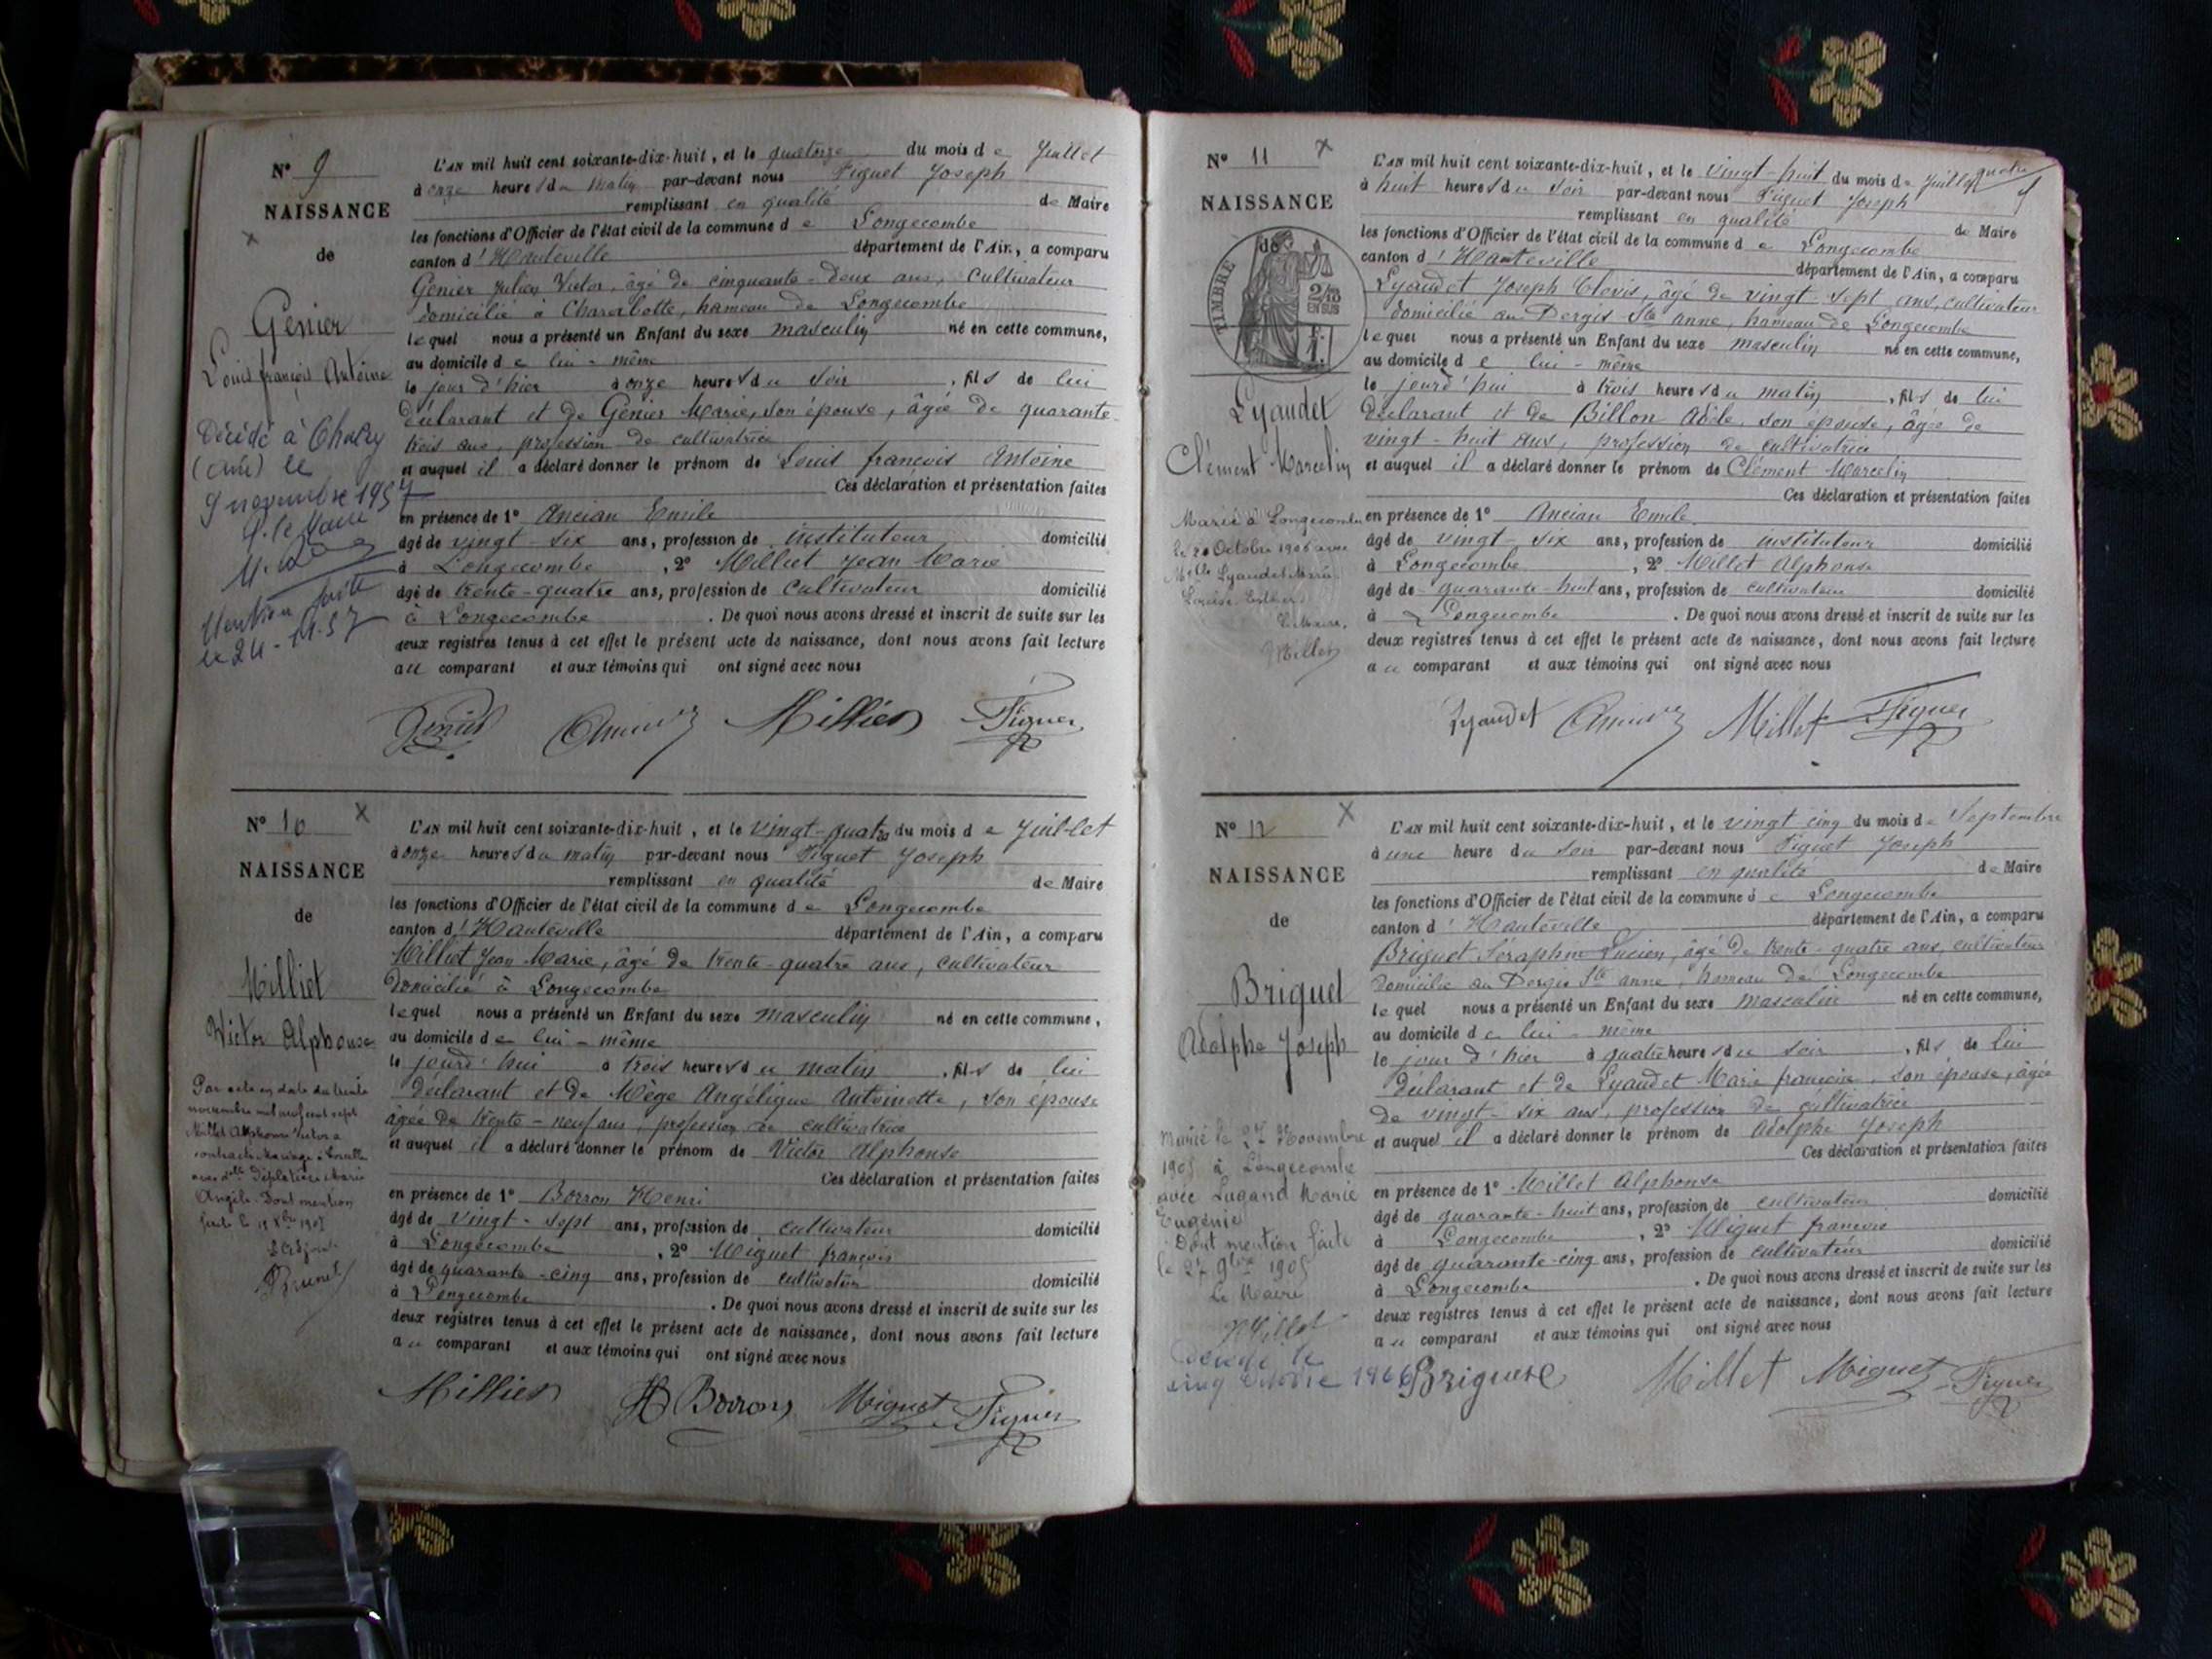 N° 9
NAISSANCE
de
Génier
Louis françois Antoine
Décédé à
(Ain) le
9 novembre 1957
P. le Maire
Mention faite
le 24-11-57
L'AN mil huit cent soixante-dix-huit, et le quatorze du mois de Juillet
à onze heures du matin par-devant nous Figuet Joseph
remplissant en qualité de Maire
les fonctions d'Officier de l'état civil de la commune de Longecombe
canton d'Hauteville département de l'Ain, a comparu
Génier Julien Victor, âgé de cinquante-deux ans, cultivateur
domicilié à Charabotte, hameau de Longecombe
lequel nous a présenté un Enfant du sexe masculin né en cette commune,
au domicile de lui-même
le jour d'hier à onze heures du soir, fils de lui
déclarant et de Génier Marie, son épouse, âgée de quarante
trois ans, profession de cultivatrice
et auquel il a déclaré donner le prénom de Louis françois Antoine
Ces déclaration et présentation faites
en présence de 1° Ancian Emile
âgé de vingt-six ans, profession de instituteur domicilié
à Longecombe, 2° Milliet Jean Marie
âgé de trente-quatre ans, profession de cultivateur domicilié
à Longecombe. De quoi nous avons dressé et inscrit de suite sur les
deux registres tenus à cet effet le présent acte de naissance, dont nous avons fait lecture
au comparant et aux témoins qui ont signé avec nous
Génier Ancian Milliet Figuet
N° 10
NAISSANCE
de
Milliet
Victor Alphonse
Par acte en date du trente
novembre mil neuf cent sept
Millet Alphonse Victor a
contracté Mariage à
avec Delle Marie
Angèle. Dont mention
faite le 1907
L'Adjoint
Brunet
L'AN mil huit cent soixante-dix-huit, et le vingt-quatre du mois de Juillet
à onze heures du matin par-devant nous Figuet Joseph
remplissant en qualité de Maire
les fonctions d'Officier de l'état civil de la commune de Longecombe
canton d'Hauteville département de l'Ain, a comparu
Milliet Jean Marie, âgé de trente-quatre ans, cultivateur
domicilié à Longecombe
lequel nous a présenté un Enfant du sexe masculin né en cette commune,
au domicile de lui-même
le jourd'hui à trois heures du matin, fils de lui
déclarant et de Mège Angélique Antoinette, son épouse
âgée de trente-neuf ans, profession de cultivatrice
et auquel il a déclaré donner le prénom de Victor Alphonse
Ces déclaration et présentation faites
en présence de 1° Borron Henri
âgé de vingt-sept ans, profession de cultivateur domicilié
à Longecombe, 2° Miguet françois
âgé de quarante-cinq ans, profession de cultivateur domicilié
à Longecombe. De quoi nous avons dressé et inscrit de suite sur les
deux registres tenus à cet effet le présent acte de naissance, dont nous avons fait lecture
au comparant et aux témoins qui ont signé avec nous
Milliet H Borron Miguet Figuet
N° 11
NAISSANCE
de
TIMBRE
2/10
EN SUS
Lyaudet
Clément Marcelin
Marié à Longecombe
le 20 Octobre 1906 avec
Melle Lyaudet Marie
Louise
Le Maire,
Millet
L'AN mil huit cent soixante-dix-huit, et le vingt-huit du mois de Juillet
à huit heures du soir par-devant nous Figuet Joseph
remplissant en qualité de Maire
les fonctions d'Officier de l'état civil de la commune de Longecombe
canton d'Hauteville département de l'Ain, a comparu
Lyaudet Joseph Clovis, âgé de vingt-sept ans, cultivateur
domicilié au Dergis Ste anne, hameau de Longecombe
lequel nous a présenté un Enfant du sexe masculin né en cette commune,
au domicile de lui-même
le jourd'hui à trois heures du matin, fils de lui
déclarant et de Billon Adèle, son épouse, âgée de
vingt-huit ans, profession de cultivatrice
et auquel il a déclaré donner le prénom de Clément Marcelin
Ces déclaration et présentation faites
en présence de 1° Ancian Emile
âgé de vingt-six ans, profession de instituteur domicilié
à Longecombe, 2° Millet Alphonse
âgé de quarante-huit ans, profession de cultivateur domicilié
à Longecombe. De quoi nous avons dressé et inscrit de suite sur les
deux registres tenus à cet effet le présent acte de naissance, dont nous avons fait lecture
au comparant et aux témoins qui ont signé avec nous
Lyaudet Ancian Millet Figuet
N° 12
NAISSANCE
de
Briguet
Adolphe Joseph
Marié le 27 Novembre
1905 à Longecombe
avec Lugand Marie
Eugénie
Dont mention faite
le 27 9bre 1905
Le Maire
Millet
Décédé le
cinq 1966
L'AN mil huit cent soixante-dix-huit, et le vingt cinq du mois de Septembre
à une heure du soir par-devant nous Figuet Joseph
remplissant en qualité de Maire
les fonctions d'Officier de l'état civil de la commune de Longecombe
canton d'Hauteville département de l'Ain, a comparu
Briguet Séraphin Lucien, âgé de trente-quatre ans, cultivateur
domicilié au Dergis Ste anne, hameau de Longecombe
lequel nous a présenté un Enfant du sexe masculin né en cette commune,
au domicile de lui-même
le jour d'hier à quatre heures du soir, fils de lui
déclarant et de Lyaudet Marie françoise, son épouse, âgée
de vingt-six ans, profession de cultivatrice
et auquel il a déclaré donner le prénom de Adolphe Joseph
Ces déclaration et présentation faites
en présence de 1° Millet Alphonse
âgé de quarante-huit ans, profession de cultivateur domicilié
à Longecombe, 2° Miguet françois
âgé de quarante-cinq ans, profession de cultivateur domicilié
à Longecombe. De quoi nous avons dressé et inscrit de suite sur les
deux registres tenus à cet effet le présent acte de naissance, dont nous avons fait lecture
au comparant et aux témoins qui ont signé avec nous
Briguet Millet Miguet Figuet